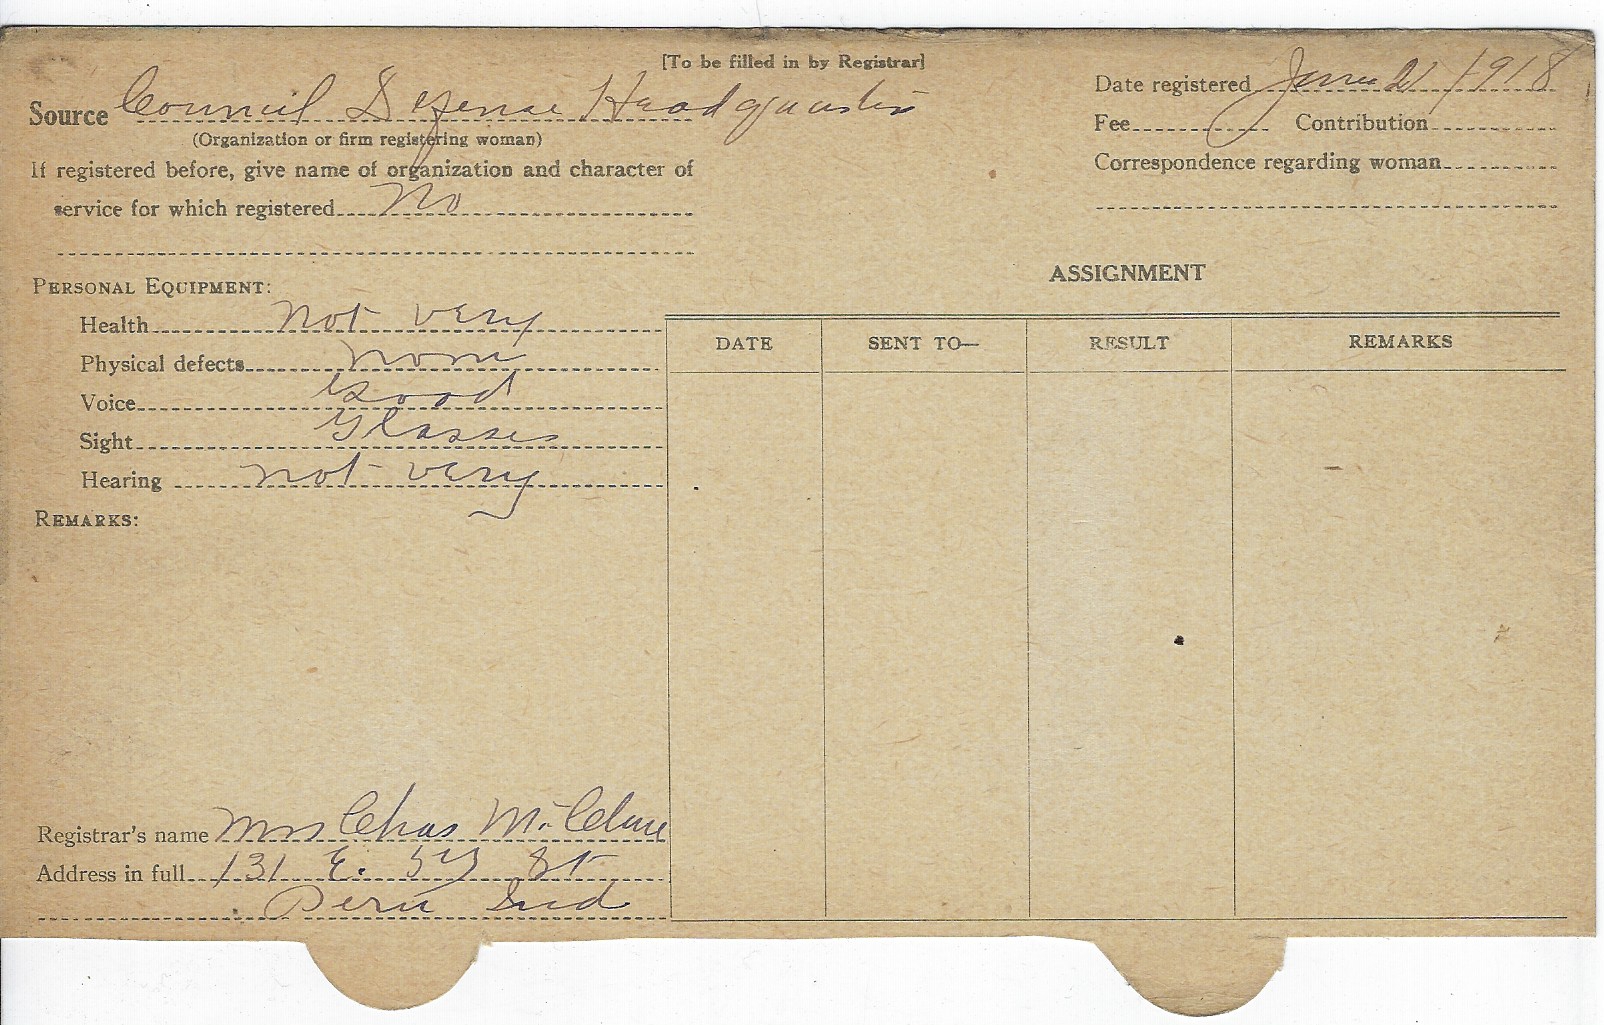 [To be filled in by Registrar]
Source Council Defense Headquarters
(Organization or firm registering woman)
If registered before, give name of organization and character of
service for which registered No
Date registered June 21 1918
Fee Contribution
Correspondence regarding woman
PERSONAL EQUIPMENT:
Health not very
Physical defects none
Voice Good
Sight Glasses
Hearing not very
REMARKS:
Registrar's name Mrs Chas McClure
Address in full 131 E. St
Peru Ind
ASSIGNMENT
DATE SENT TO— RESULT REMARKS